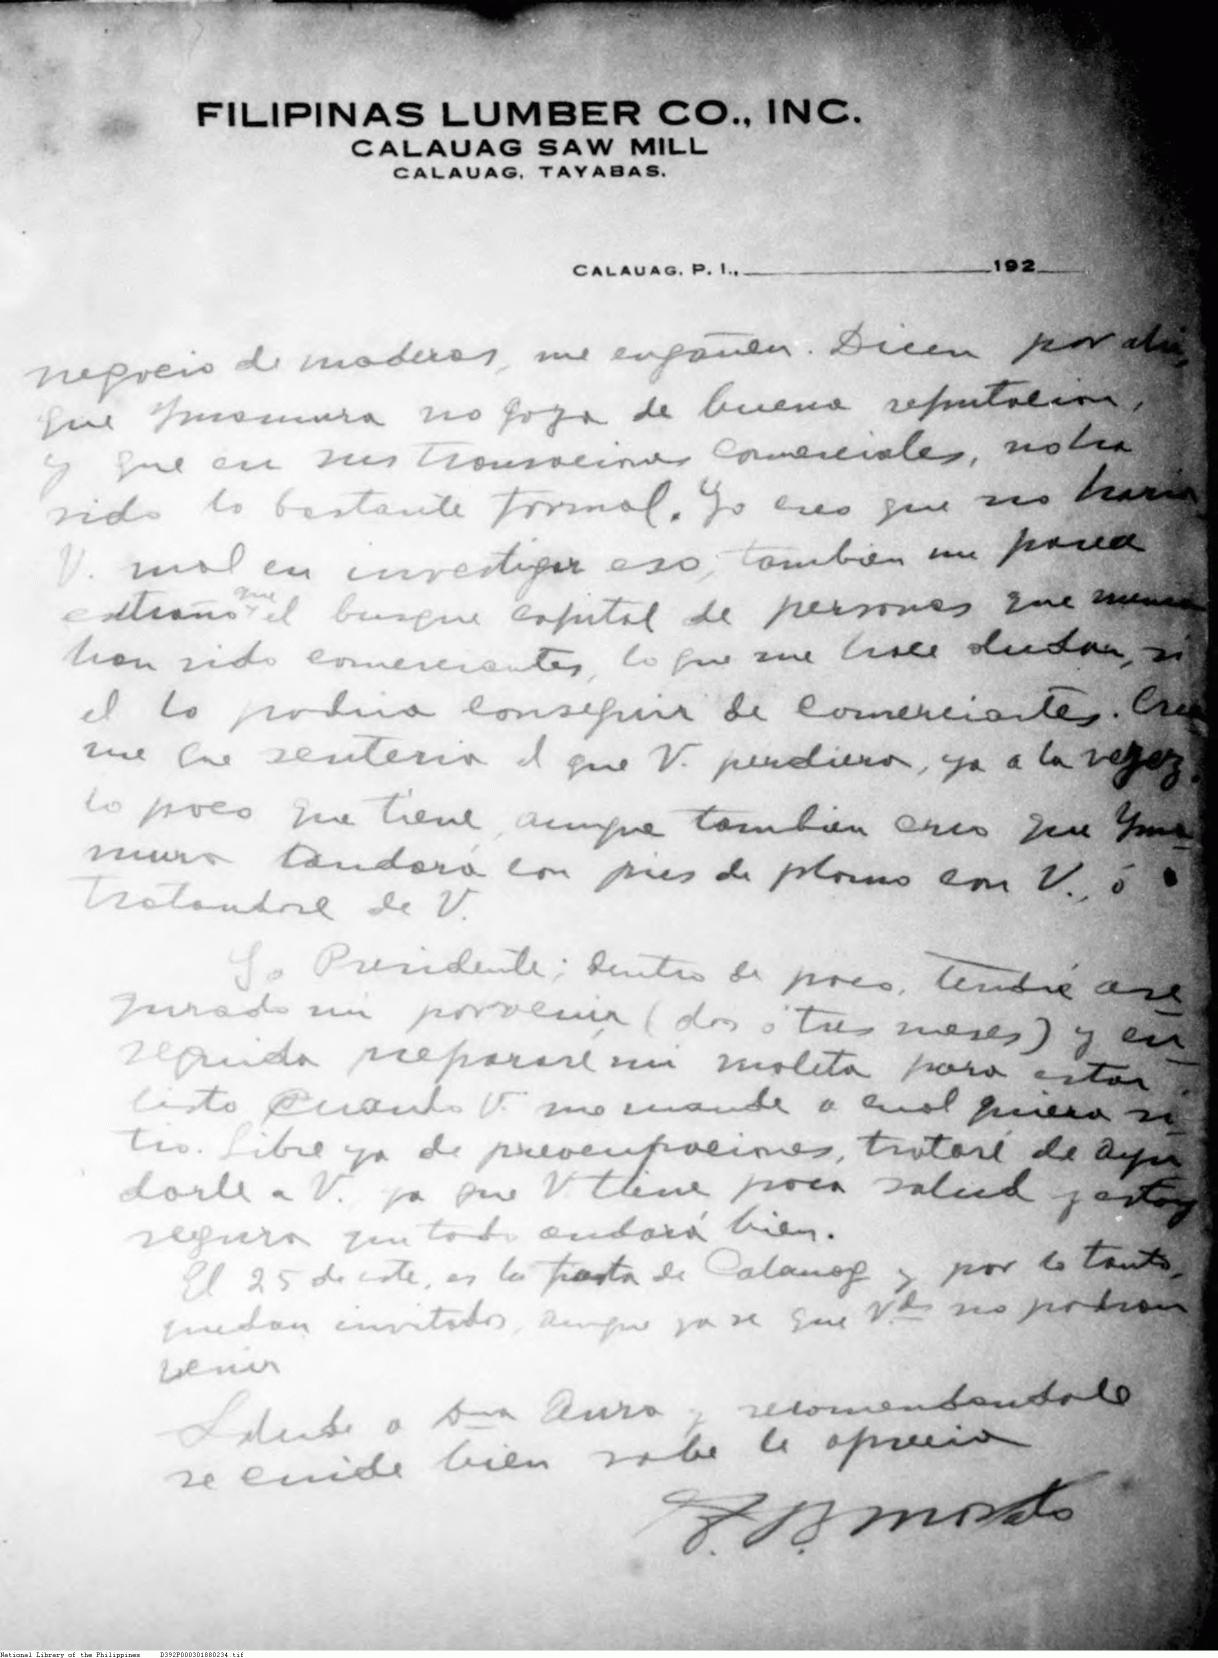 FILIPINAS LUMBER CO., INC.
CALAUAG SAW MILL
CALAUAG, TAYABAS.
CALAUAG, P. I., 192
negocio de maderas, me engañen. Dicen por ahi,
que Ymamura no goza de buena reputacion,
y que en sus transaciones comerciales, no ha
sido lo bastante formal. Yo creo que no haria
V. mal en investigar eso, tambien me parece
extraño que el busque capital de personas que nunca
han sido comerciantes, lo que me hace dudar, si
el lo podria conseguir de comerciantes. Crea
me que sentiria el que V. perdiera, ya a la vejez,
lo poco que tiene, aunque tambien creo que Yma-
mura andará con pies de plomo con V., ó
tratandose de V.
Yo Presidente; dentro de poco, tendré ase
gurado mi porvenir (dos o tres meses) y en-
seguida prepararé mi maleta para estar
listo cuando V. me mande a cual quiera si-
tio. Libre ya de preocupaciones, trataré de ayu
darle a V. ya que V. tiene poca salud y estoy
seguro que todo andará bien.
El 25 de este, es la fiesta de Calauag y por lo tanto,
quedan invitados, aunque ya se que Vds no podran
venir
Salude a Dna Aura y recomendandole
se cuide bien sabe le aprecia
F. B. Morato
National Library of the Philippines D392P000301880234.tif